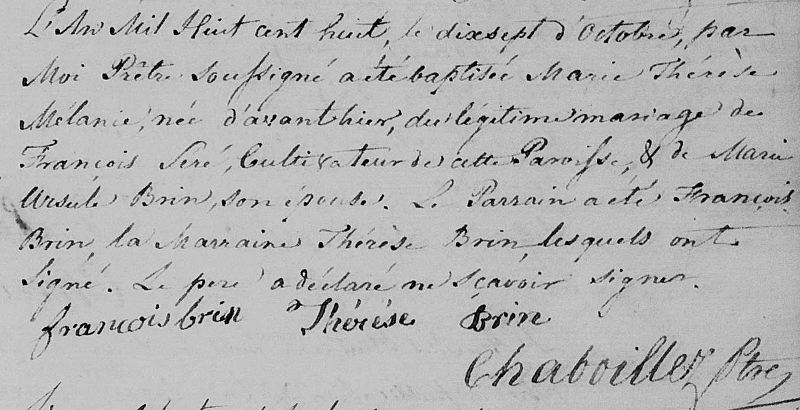 L'An Mil Huit cent huit, le dixsept d'Octobre, par
Moi Prêtre soussigné a été baptisée Marie Thérèse
Mélanie, née d'avant hier, du légitime mariage de
François Seré, Cultivateur de cette Paroisse, & de Marie
Ursule Brin, son épouse. Le Parrain a été François
Brin, la Marraine Thérèse Brin, lesquels ont
signé. Le pere a déclaré ne sçavoir signer.
françois brin Thérèse Brin
Chaboillez Ptre